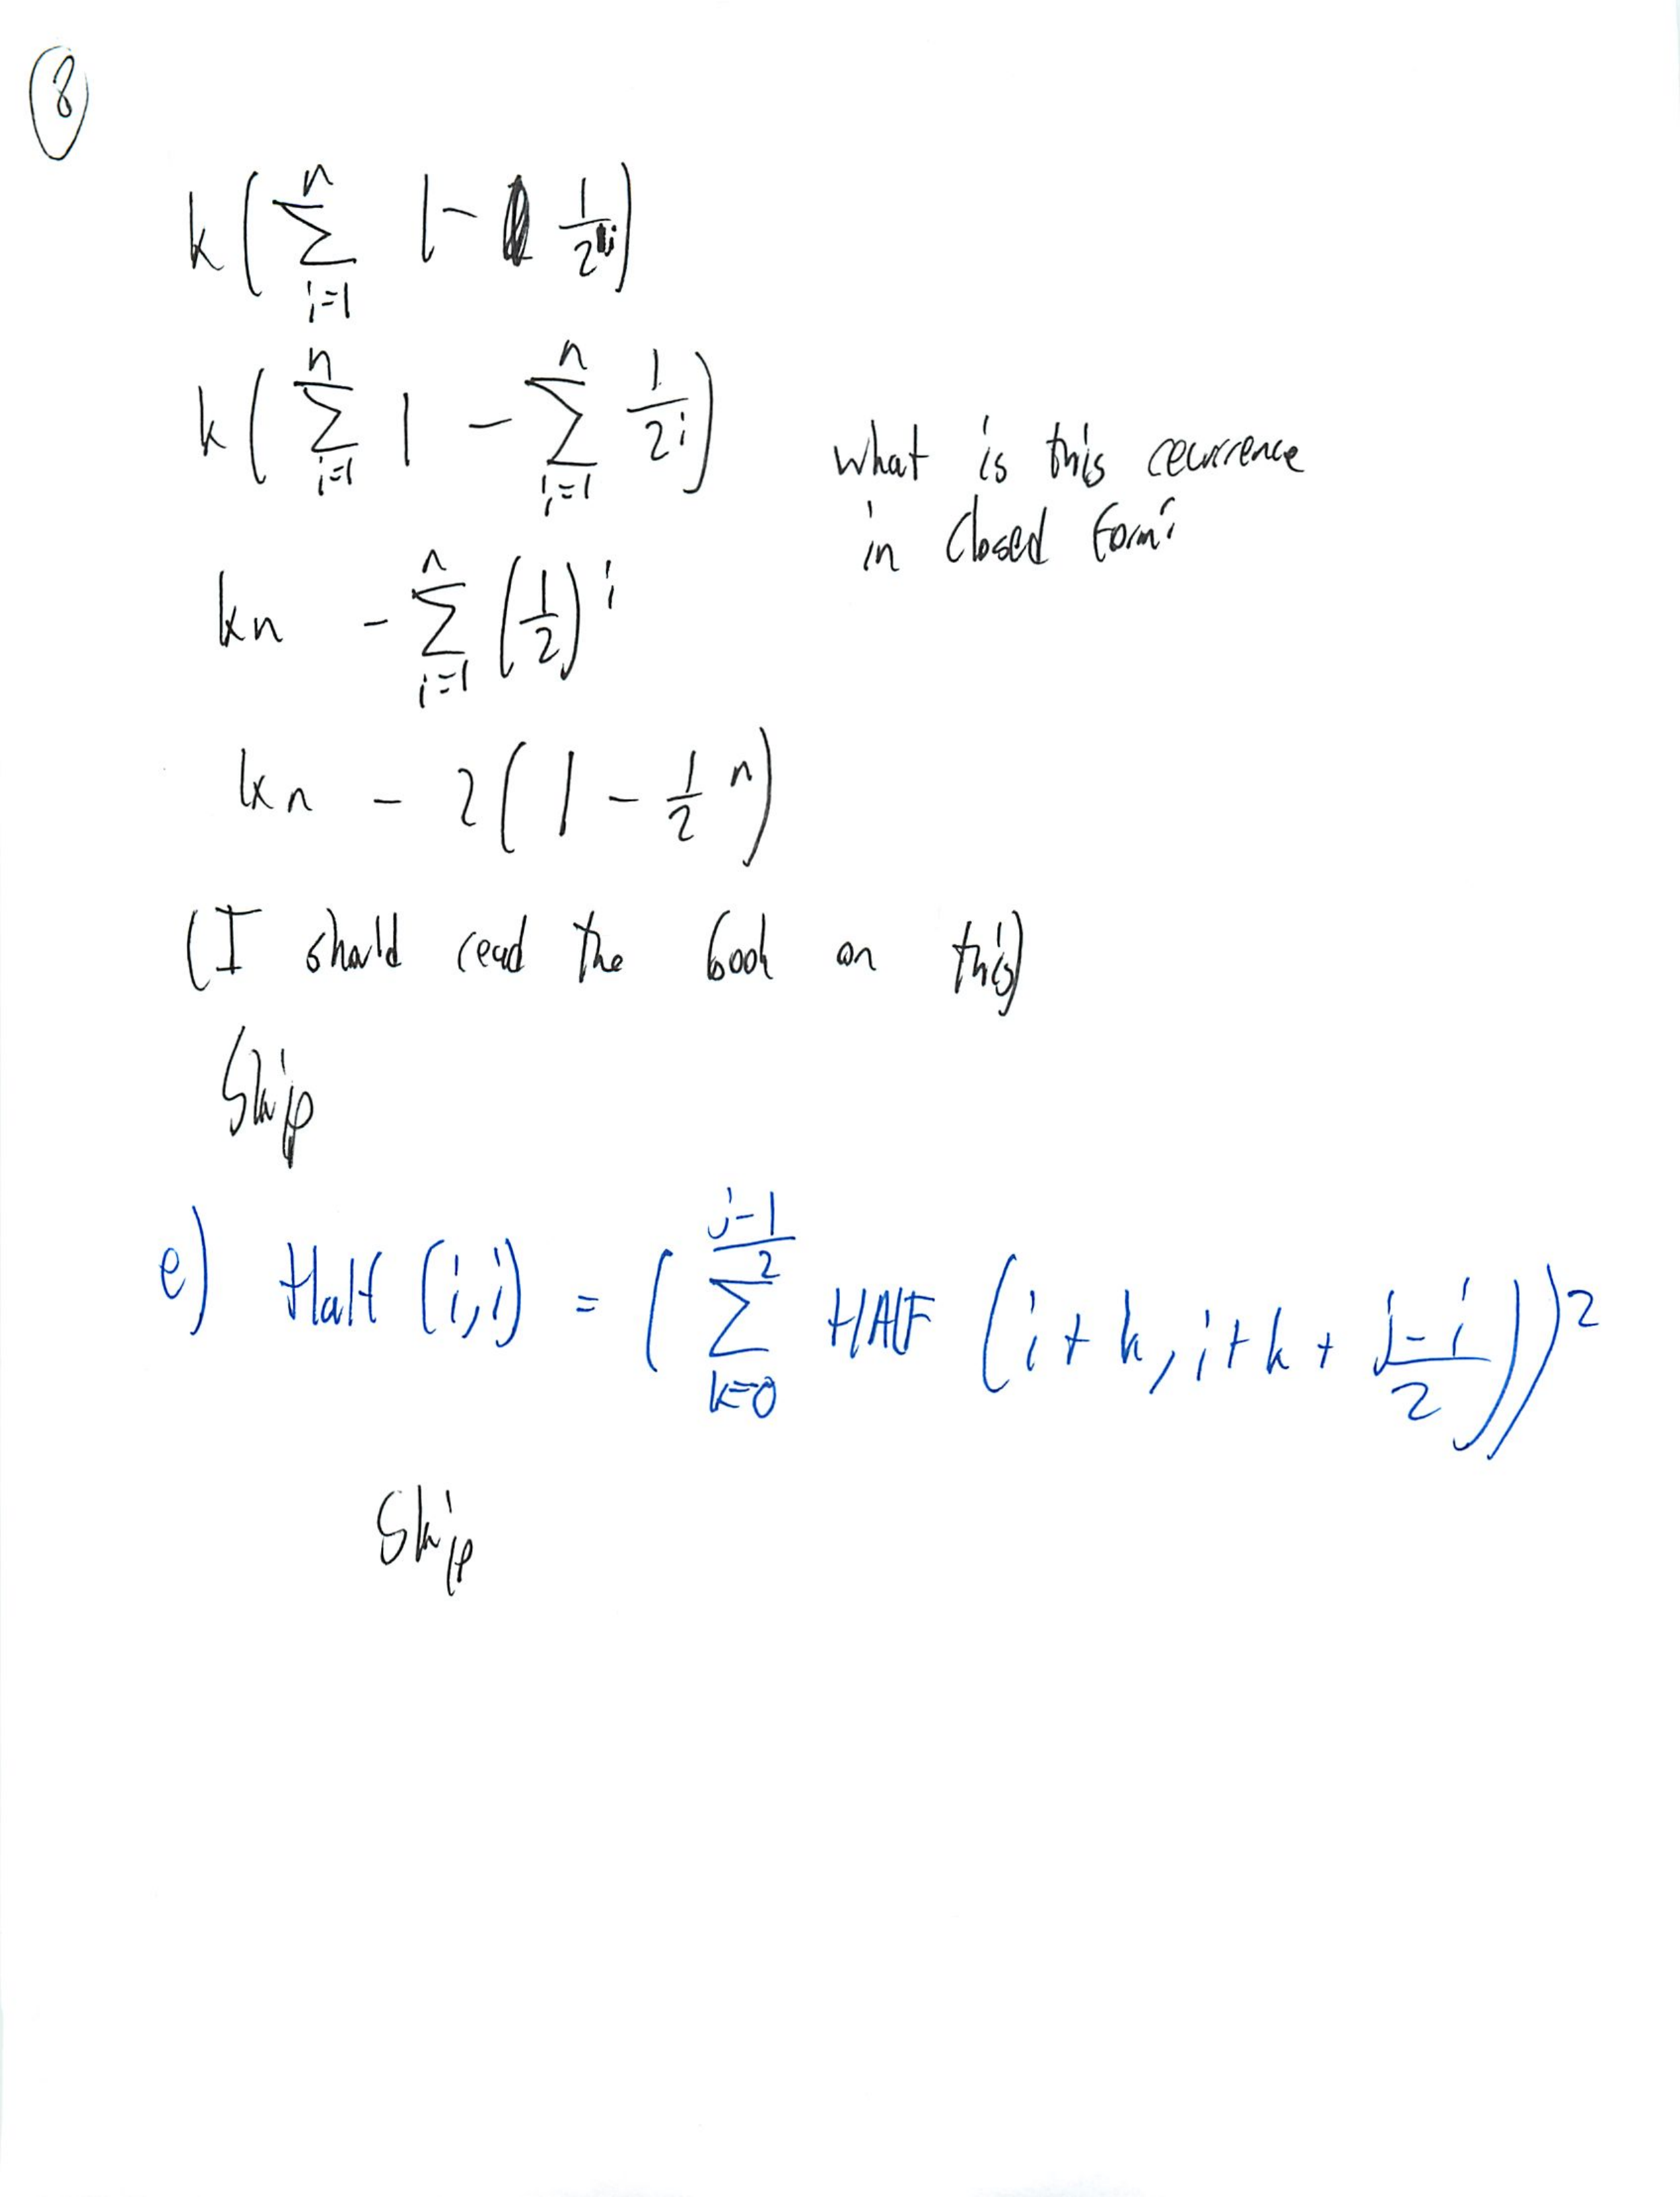 8
k ( n Σ i=1 1 - 1/2i )
k ( n Σ i=1 1 - n Σ i=1 1/2i ) what is this recurrence
in closed form?
kn - n Σ i=1 (1/2)^i
kn - 2 ( 1 - 1/2 ^n )
(I should read the book on this)
Skip
e) Half (i,j) = ( j-1/2 Σ k=0 HALF ( i+k, i+k + j-i/2 ))^2
Skip